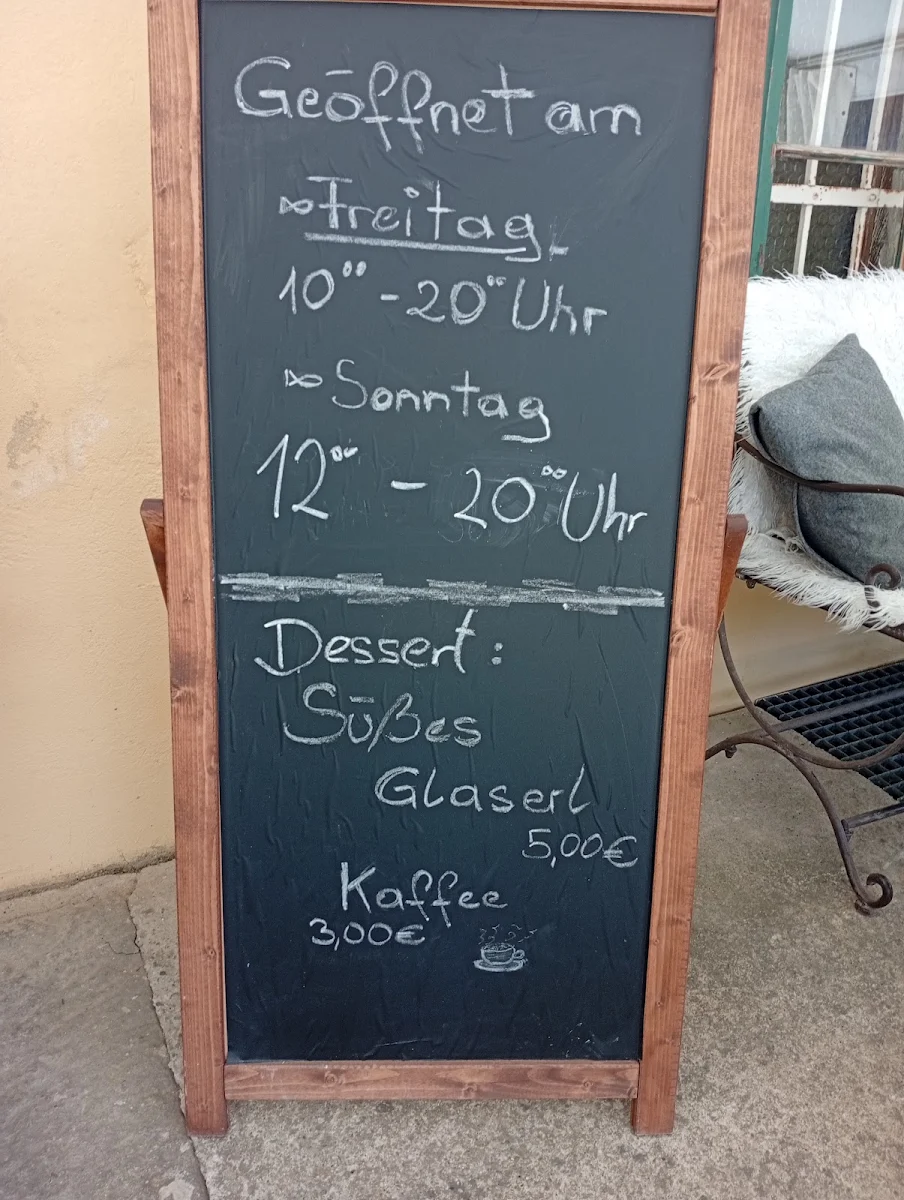 Geöffnet am
∞ Freitag
10⁰⁰ - 20⁰⁰ Uhr
∞ Sonntag
12⁰⁰ - 20⁰⁰ Uhr
Dessert:
Süßes
Glaserl
5,00€
Kaffee
3,00€